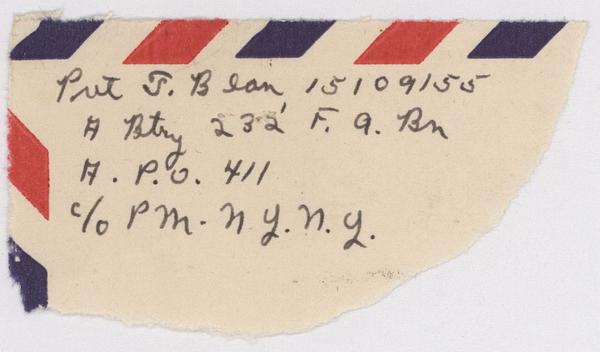 Pvt J. Blan, 15109155
A Btry 232 F. A. Bn
A. P.O. 411
c/o PM. N.Y. N.Y.